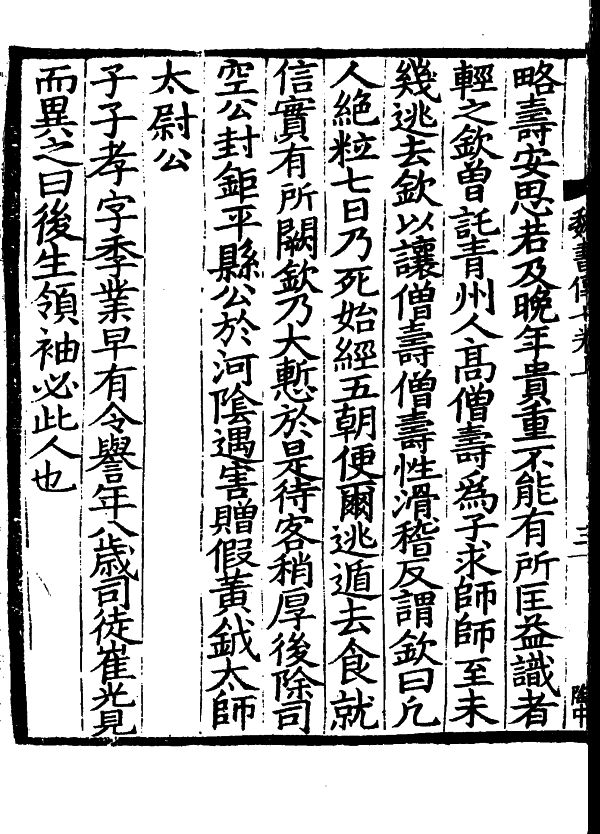 略壽安思若及晚年貴重不能有所匡益識者
輕之欽曾託青州人高僧壽爲子求師師至未
幾逃去欽以讓僧壽僧壽性滑稽反謂欽曰凡
人絶粒七日乃死始經五朝便爾逃遁去食就
信實有所闕欽乃大慙於是待客稍厚後除司
空公封鉅平縣公於河陰遇害贈假黃鉞太師
太尉公
子子孝字季業早有令譽年八歲司徒崔光見
而異之曰後生領袖必此人也